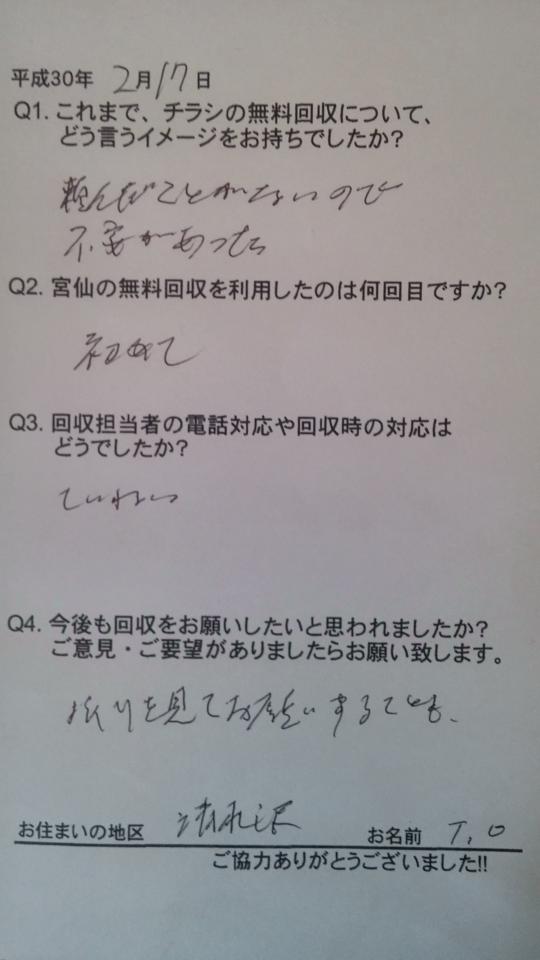 平成30年 2月17日
Q1. これまで、チラシの無料回収について、
どう言うイメージをお持ちでしたか?
頼んだことがないので
不安があった
Q2. 宮仙の無料回収を利用したのは何回目ですか?
初めて
Q3. 回収担当者の電話対応や回収時の対応は
どうでしたか?
ていねい
Q4. 今後も回収をお願いしたいと思われましたか?
ご意見・ご要望がありましたらお願い致します。
を見てお願いすることも、
お住まいの地区 お名前 T,O
ご協力ありがとうございました!!